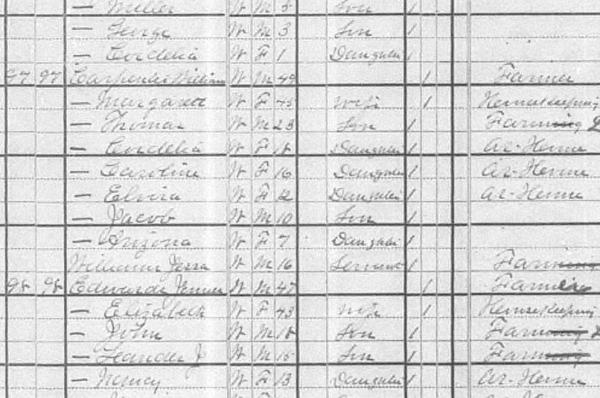 — Miller W M 5 Son 1
— George W M 3 Son 1
— Cordelia W F 1 Daughter 1
97 97 Carpenter William W M 49 1 Farmer
— Margarett W F 45 Wife 1 House Keeping
— Thomas W M 23 Son 1 Farming
— Cordelia W F 18 Daughter 1 At-Home
— Caroline W F 16 Daughter 1 At-Home
— Elvira W F 12 Daughter 1 At-Home
— Jacob W M 10 Son 1
— Arizona W F 7 Daughter 1
Williams W M 16 Servant 1 Farming
98 98 Edwards W M 47 1 Farmer
— Elizabeth W F 43 Wife 1 House Keeping
— John W M 18 Son 1 Farming
— Leander J W M 15 Son 1 Farming
— Nancy W F 13 Daughter 1 At-Home